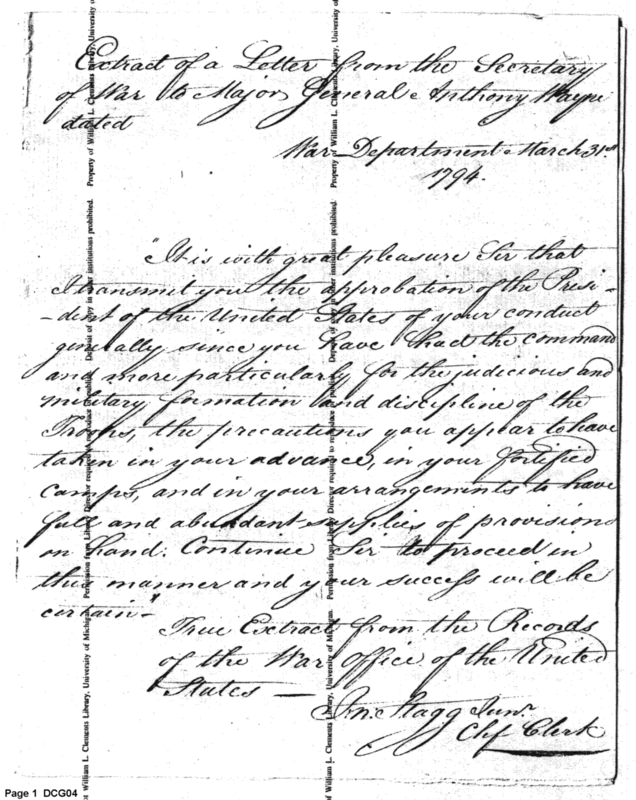 Extract of a Letter from the Secretary
of War to Major General Anthony Wayne
dated
War Department March 31st
1794.
"It is with great pleasure Sir that
I transmit you the approbation of the Presi-
-dent of the United States of your conduct
generally since you have had the command
and more particularly for the judicious and
military formation and discipline of the
Troops, the precautions you appear to have
taken in your advance, in your fortified
camps, and in your arrangements to have
full and abundant supplies of provisions
on hand. Continue Sir to proceed in
this manner and your success will be
certain-"
True Extract from the Records
of the War Office of the United
States —
Jno. Stagg Junr.
Chf Clerk
Property of William L. Clements Library, University of
Permission from Library Director required to reproduce or publish. Deposit of copy in other institutions prohibited.
of William L. Clements Library, University of Michigan.
Page 1 DCG04